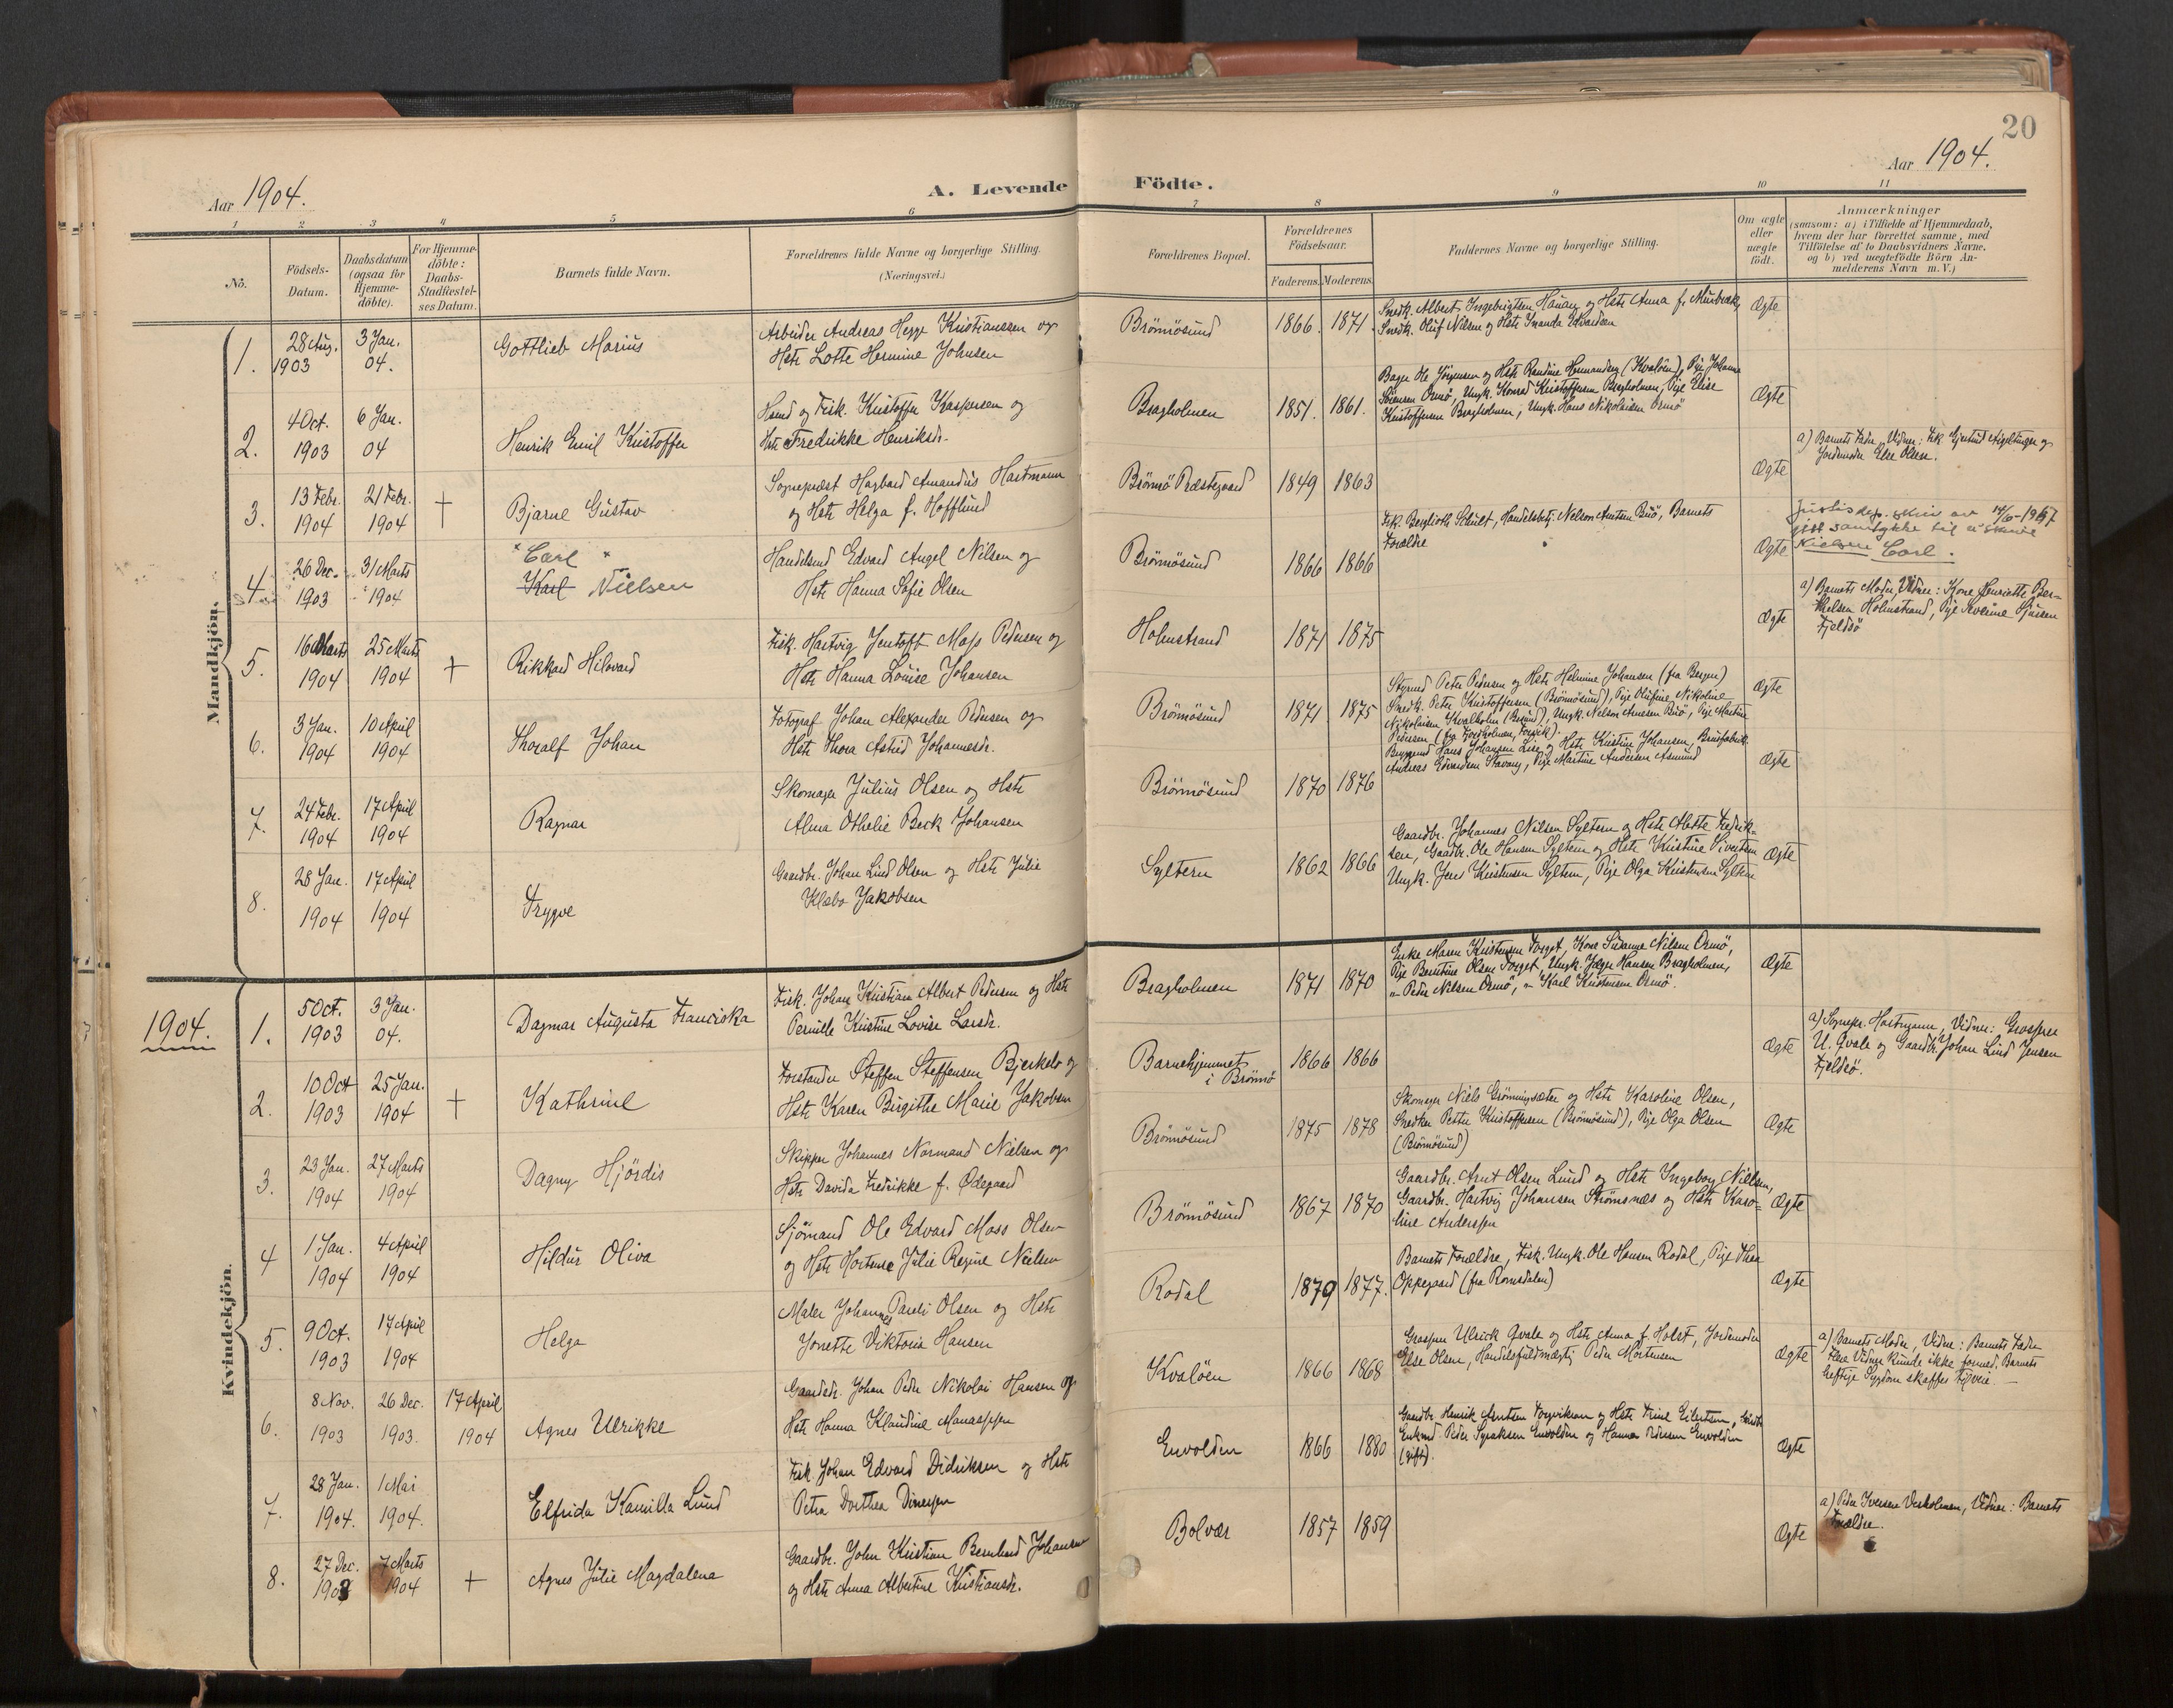 20
Aar 1904.
A. Levende Födte.
Aar 1904.
1 2 3 4 5 6 7 8 9 10 11
No.
Födsels-
Datum.
Daabsdatum
(ogsaa for
Hjemme-
döbte).
For Hjemme-
döbte:
Daabs-
Stadfæstel-
ses Datum.
Barnets fulde Navn.
Forældrenes fulde Navne og borgerlige Stilling.
(Næringsvei.)
Forældrenes Bopæl.
Forældrenes
Födselsaar.
Faderens. Moderens.
Faddernes Navne og borgerlige Stilling.
Om ægte
eller
uægte
födt.
Anmærkninger
(saasom: a) i Tilfælde af Hjemmedaab,
hvem der har forrettet samme, med
Tilföielse af to Daabsvidners Navne,
og b) ved uægtefödte Börn An-
melderens Navn m. V.)
Mandkjön.
1. 28 Aug. 1903
3 Jan. 04.
Gottlieb Marius
Arbeider Andreas Hegge Kristianssen og
Hstr Lotte Hermine Johnsen
Brönnösund
1866. 1871.
Snedk. Albert Ingebrigtsen Hauan og Hstr Anna f.
Snedk. Oluf Nilsen og Hstr Amanda Edvardsen
Ægte
2. 4 Oct. 1903
6 Jan. 04
Henrik Emil Kristoffer
Hsmd og Fisk. Kristoffer Kaspersen og
Hstr Fredrikke Henriksdr.
Bragholmen
1851. 1861.
Bager Ole Jörgensen og Hstr Randine Hermansen (Kvalöen), Pige Johanna
Sörensen Ormö, Ungk. Konrad Kristoffersen Bragholmen, Pige Elise
Kristoffersen Bragholmen, Ungk. Hans Nikolaisen Ormö
Ægte
3. 13 Febr. 1904
21 Febr. 1904
†
Bjarne Gustav
Sognepræst Hagbard Amandus Hartmann
og Hstr Helga f. Hofflund
Brönnö Præstegaard
1849 1863
Ægte
a) Barnets Fader, Vidner: Frk. Gjertrud og
Jordemoder Else Olsen.
4. 26 Dec. 1903
31 Marts 1904
"Carl"
Karl Nielsen
Handelsmd Edvard Angel Nilsen og
Hstr Hanna Sofie Olsen
Brönnösund
1866 1866
Frk. Berglioth Schult, Handelsbetj. Nelson Arntsen Buö, Barnets
Forældre
Ægte
Justisdep. skriv av 14/6-1957
gitt samtykke til å skrive
Nielsen Carl.
5. 16 Marts 1904
25 Marts 1904
†
Rikkard Hilovard
Fisk. Hartvig Jentoft Moss Pedersen og
Hstr Hanna Louise Johansen
Holmstrand
1871 1875
Ægte
a) Barnets Moder, Vidner: Kone Henriette Ber-
thelsen Holmstrand, Pige Severine Sjursen
Fjeldsö
6. 3 Jan. 1904
10 April 1904
Thoralf Johan
Fotograf Johan Alexander Pedersen og
Hstr Thora Astrid Johannesdr.
Brönnösund
1871 1875
Styrmd Peter Pedersen og Hstr Helmine Johansen (fra Bergen)
Snedk. Peter Kristoffersen (Brönnösund), Pige Olufine Nikoline
Nikolaisen Kvalholm (Brsund), Ungk. Nelson Arntsen Buö, Pige Martine
Pedersen (fra Torgholmen, Torgvik).
Ægte
7. 24 Febr. 1904
17 April 1904
Ragnar
Skomager Julius Olsen og Hstr
Alma Othelie Beck Johansen
Brönnösund
1870 1876
Byggmd Hans Johansen Lise og Hstr Kristine Johansen, Brusfabrik.
Andreas Edvardsen Stavang, Pige Martine Andersen Asmund
Ægte
8. 28 Jan. 1904
17 April 1904
Trygve
Gaardbr. Johan Lind Olsen og Hstr Julie
Klæbo Jakobsen
Syltern
1862 1866
Gaardbr. Johannes Nilsen Syltern og Hstr Alette Fredrik-
sen, Gaardbr. Ole Hansen Syltern og Hstr Kristine Sivertsen
Ungk. Jens Kristensen Syltern, Pige Olga Kristensen Syltern
Ægte
1904.
Kvindekjön.
1. 5 Oct. 1903
3 Jan. 04.
Dagmar Augusta Franciska
Fisk. Johan Kristian Albert Pedersen og Hstr
Pernille Kristine Lovise Larsdr.
Bragholmen
1871 1870
Enke Maren Kristensen Torget, Kone Susanne Nilsen Ormö,
Pige Berntine Olsen Torget, Ungk. Jörger Hansen Bragholmen,
" Peder Nilsen Ormö, " Karl Kristensen Ormö.
Ægte
2. 10 Oct 1903
25 Jan. 1904
†
Kathrine
Forstander Steffen Steffensen Bjerkelo og
Hstr Karen Birgithe Marie Jakobsen
Barnehjemmet
i Brönnö
1866 1866
Ægte
a) Sognepr. Hartmann, Vidner: Grosserer
U. Qvale og Gaardbr. Johan Lind Jensen
Fjeldsö.
3. 23 Jan. 1904
27 Marts 1904
Dagny Hjördis
Skipper Johannes Normand Nielsen og
Hstr Davida Fredrikke f. Ödegaard
Brönnösund
1875 1878
Skomager Niels Grönningsæter og Hstr Karoline Olsen,
Snedker Petter Kristoffersen (Brönnösund), Pige Olga Olsen
(Brönnösund)
Ægte
4 1 Jan. 1904
4 April 1904
Hildur Oliva
Sjömand Ole Edvard Moss Olsen
og Hstr Hortense Julie Regine Nielsen
Brönnösund
1867 1870
Gaardbr. Arnt Olsen Lund og Hstr Ingeborg Nielsen,
Gaardbr. Hartvig Johansen Strömsnæs og Hstr Karo-
line Anderssen
Ægte
5. 9 Oct. 1903
17 April 1904
Helga
Maler Johannes Pareli Olsen og Hstr
Jonette Viktoria Hansen
Rodal
1879 1877.
Barnets Forældre, Fisk. Ungk. Ole Hansen Rodal, Pige Thea
Oppegaard (fra Romsdalen)
Ægte
6. 8 Nov. 1903
26 Dec. 1903.
17 April 1904
Agnes Ulrikke
Gaardbr. Johan Peder Nikolai Hansen og
Hstr Hanna Klaudine Manassen
Kvalöen
1866 1868
Grosserer Ulrick Qvale og Hstr Anna f. Holst, Jordemoder
Else Olsen, Handelsfuldmægtig Peder Mortensen
Ægte
a) Barnets Moder, Vidner: Barnets Fader
Flere Vidner kunde ikke formed. Barnets
heftige Sygdom skaffes tilveie. —
7. 28 Jan. 1904.
1 Mai 1904.
Elfrida Kamilla Lund
Fisk. Johan Edvard Didriksen og Hstr
Petra Dorthea Dinessen
Envolden
1866 1880
Gaardbr. Henrik Arntsen Torgviksen og Hstr Trine Eilertsen,
Enkemd Peder Syraksen Envolden og Hanna Pedersen Envolden
(gift).
Ægte
8. 27 Dec. 1903
7 Marts 1904
†
Agnes Julie Magdalena
Gaardbr. John Kristian Bernhard Johansen
og Hstr Anna Albertine Kristiansdr.
Bolvær
1857 1859
Ægte
a) Peder Iversen Vesholmen, Vidner: Barnets
Forældre.